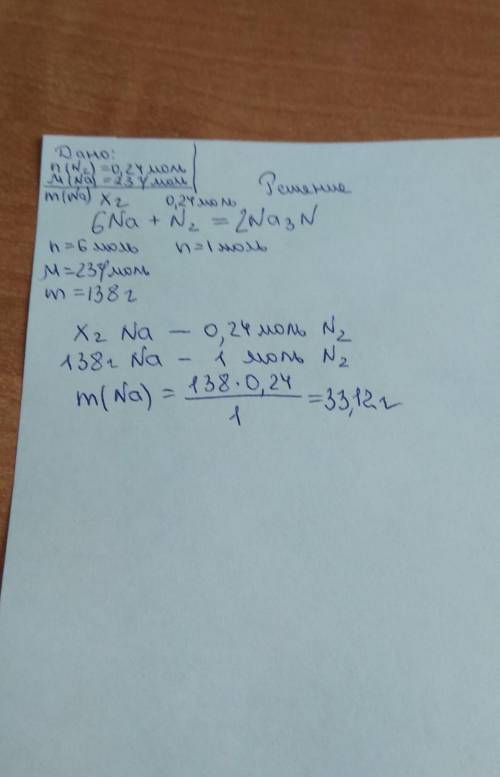 Дано:
n(N₂)=0,24моль
M(Na)=23г/моль
m(Na) Решение
xг 0,24моль
6Na + N₂ = 2Na₃N
n=6моль n=1моль
M=23г/моль
m=138г
xг Na — 0,24моль N₂
138г Na – 1 моль N₂
m(Na) = 138·0,24 / 1 = 33,12г